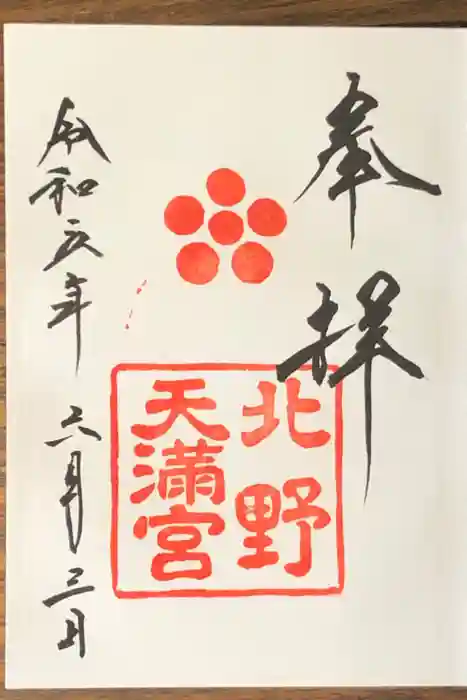 奉拝
北野
天満宮
令和元年 六月三日